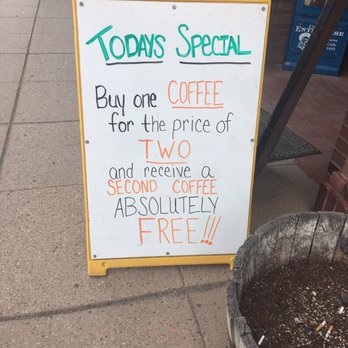 TODAYS SPECIAL
Buy one COFFEE
for the price of
TWO
and receive a
SECOND COFFEE
ABSOLUTELY
FREE!!!